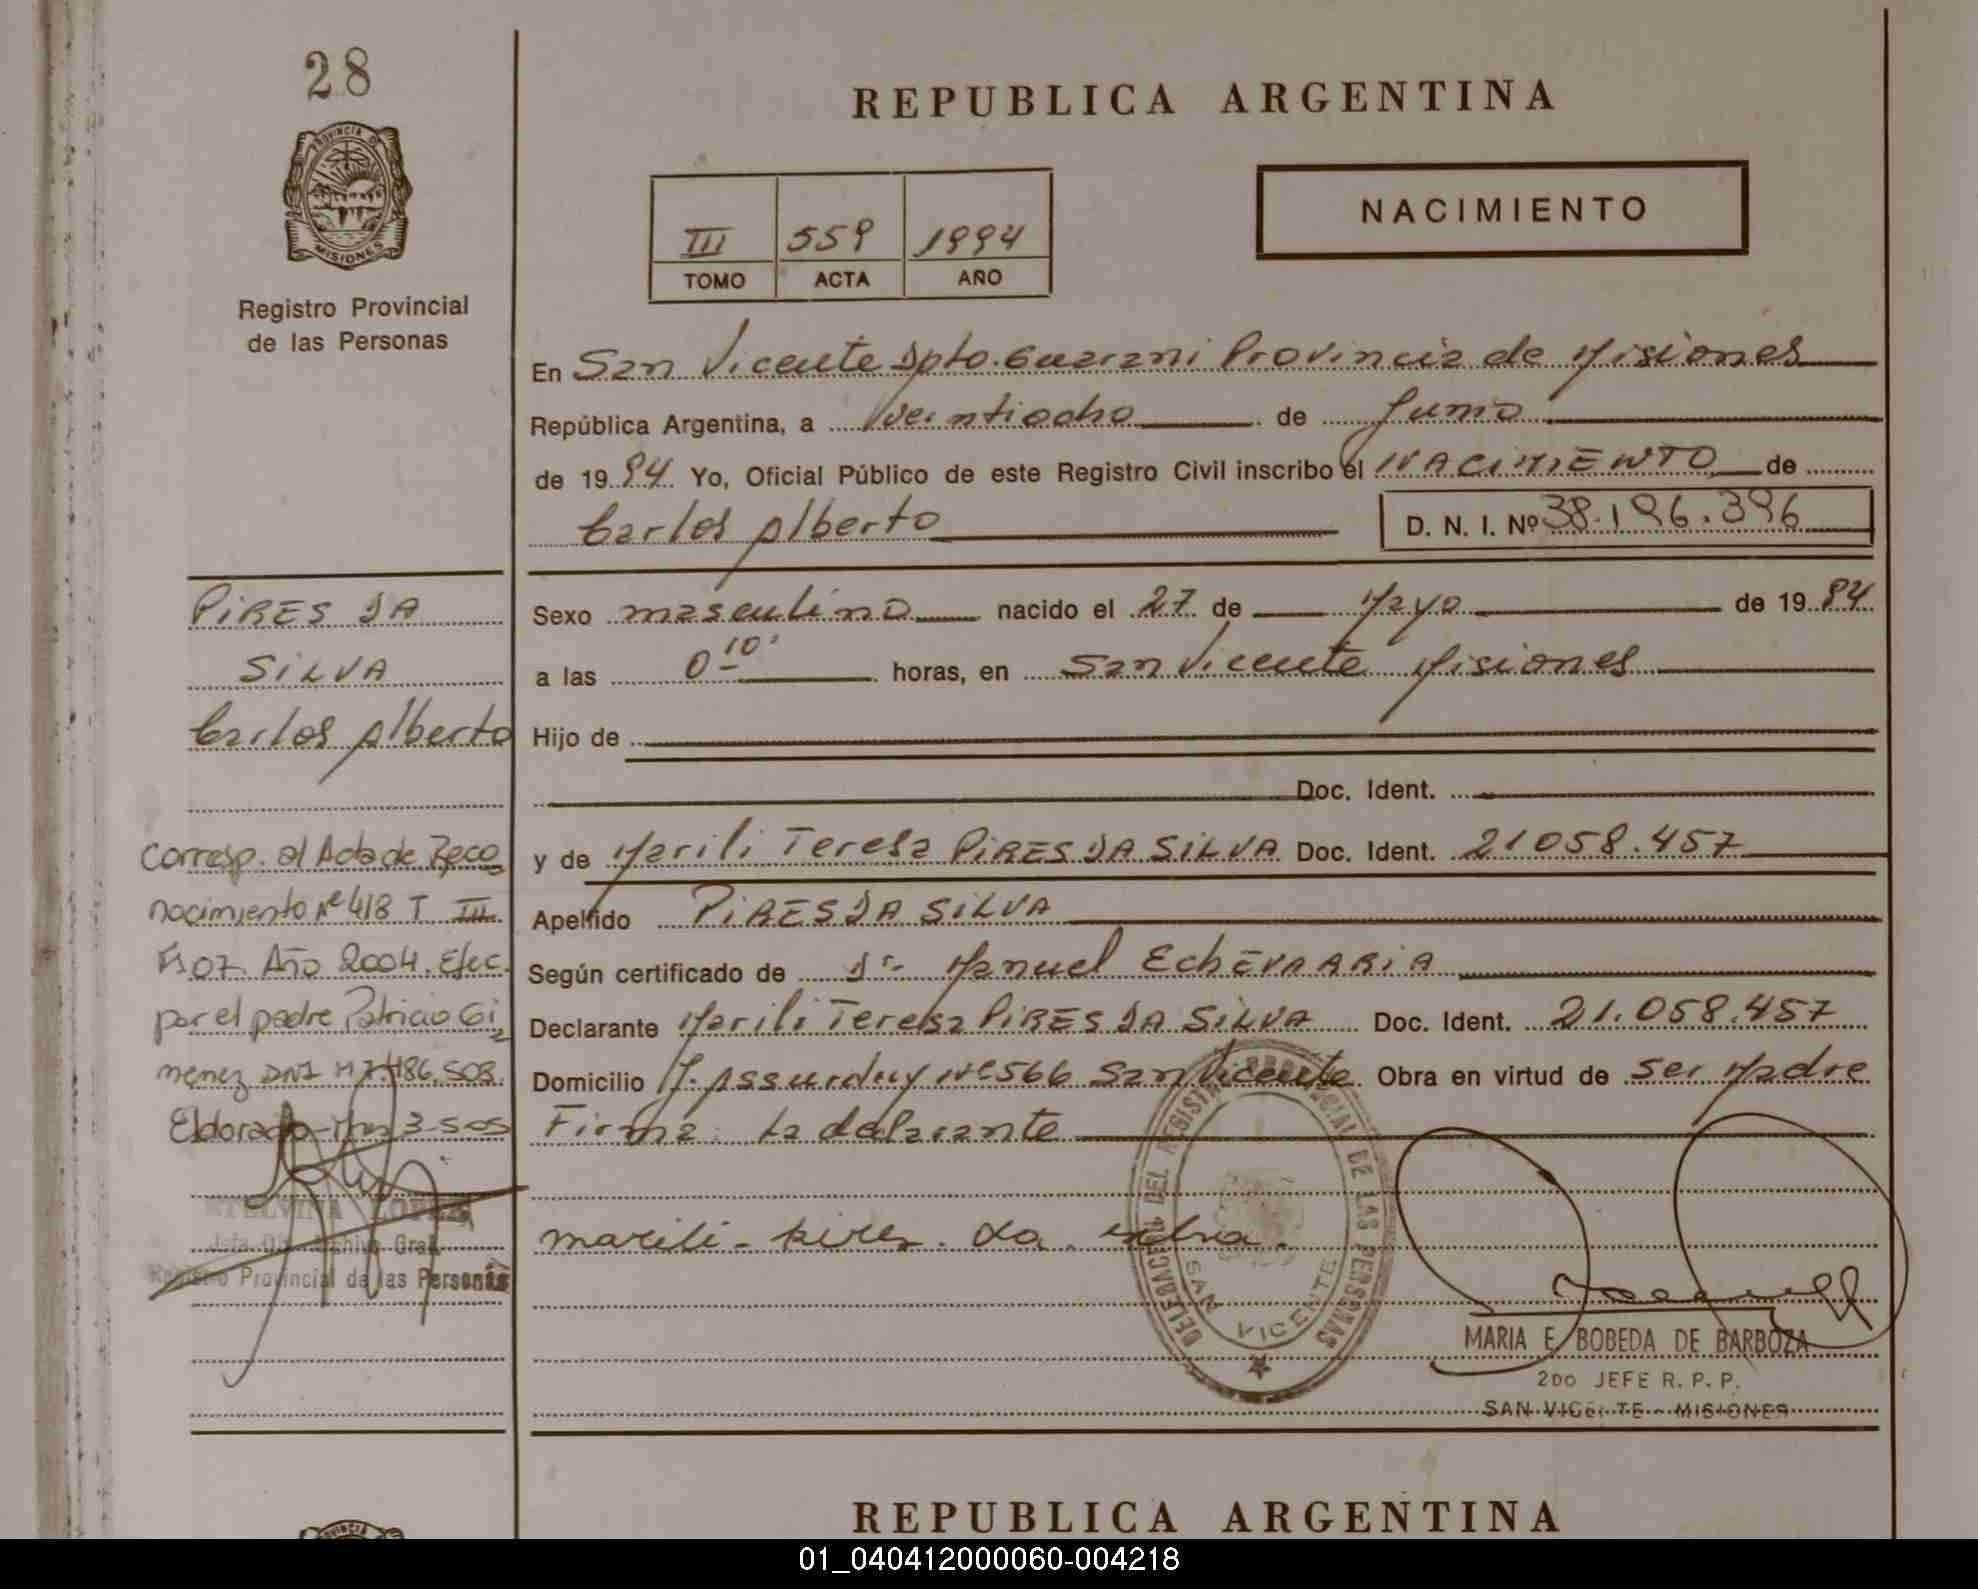 28
REPUBLICA ARGENTINA
PROVINCIA DE
MISIONES
Registro Provincial
de las Personas
III 559 1994
TOMO ACTA AÑO
NACIMIENTO
En San Vicente Dpto. Guarani Provincia de Misiones
República Argentina, a Veintiocho de Junio
de 1994 Yo, Oficial Público de este Registro Civil inscribo el NACIMIENTO de
Carlos Alberto D. N. I. Nº 38.196.396
PIRES DA
SILVA
Carlos Alberto
Sexo masculino nacido el 27 de Mayo de 1994
a las 0 10' horas, en San Vicente Misiones
Hijo de
Doc. Ident.
y de Marili Teresa PIRES DA SILVA Doc. Ident. 21058.457
Apellido PIRES DA SILVA
Según certificado de Dr. Manuel ECHEVARRIA
Declarante Marili Teresa PIRES DA SILVA Doc. Ident. 21.058.457
Domicilio J. Assurduy Nº 566 San Vicente Obra en virtud de ser Madre
Firma la declarante
Corresp. al Acta de Reco
nocimiento Nº 418 T III
Fº 07 Año 2004. Efec.
por el padre Patricio Gi
menez DNI
Eldorado 3-5-05
ETELVINA LOPEZ
Jefa Archivo Gral.
Registro Provincial de las Personas
marili pires da silva
DELEGACION DEL REGISTRO PROVINCIAL DE LAS PERSONAS
SAN VICENTE
MARIA E. BOBEDA DE BARBOZA
2DO JEFE R. P. P.
SAN VICENTE - MISIONES
REPUBLICA ARGENTINA
01_040412000060-004218